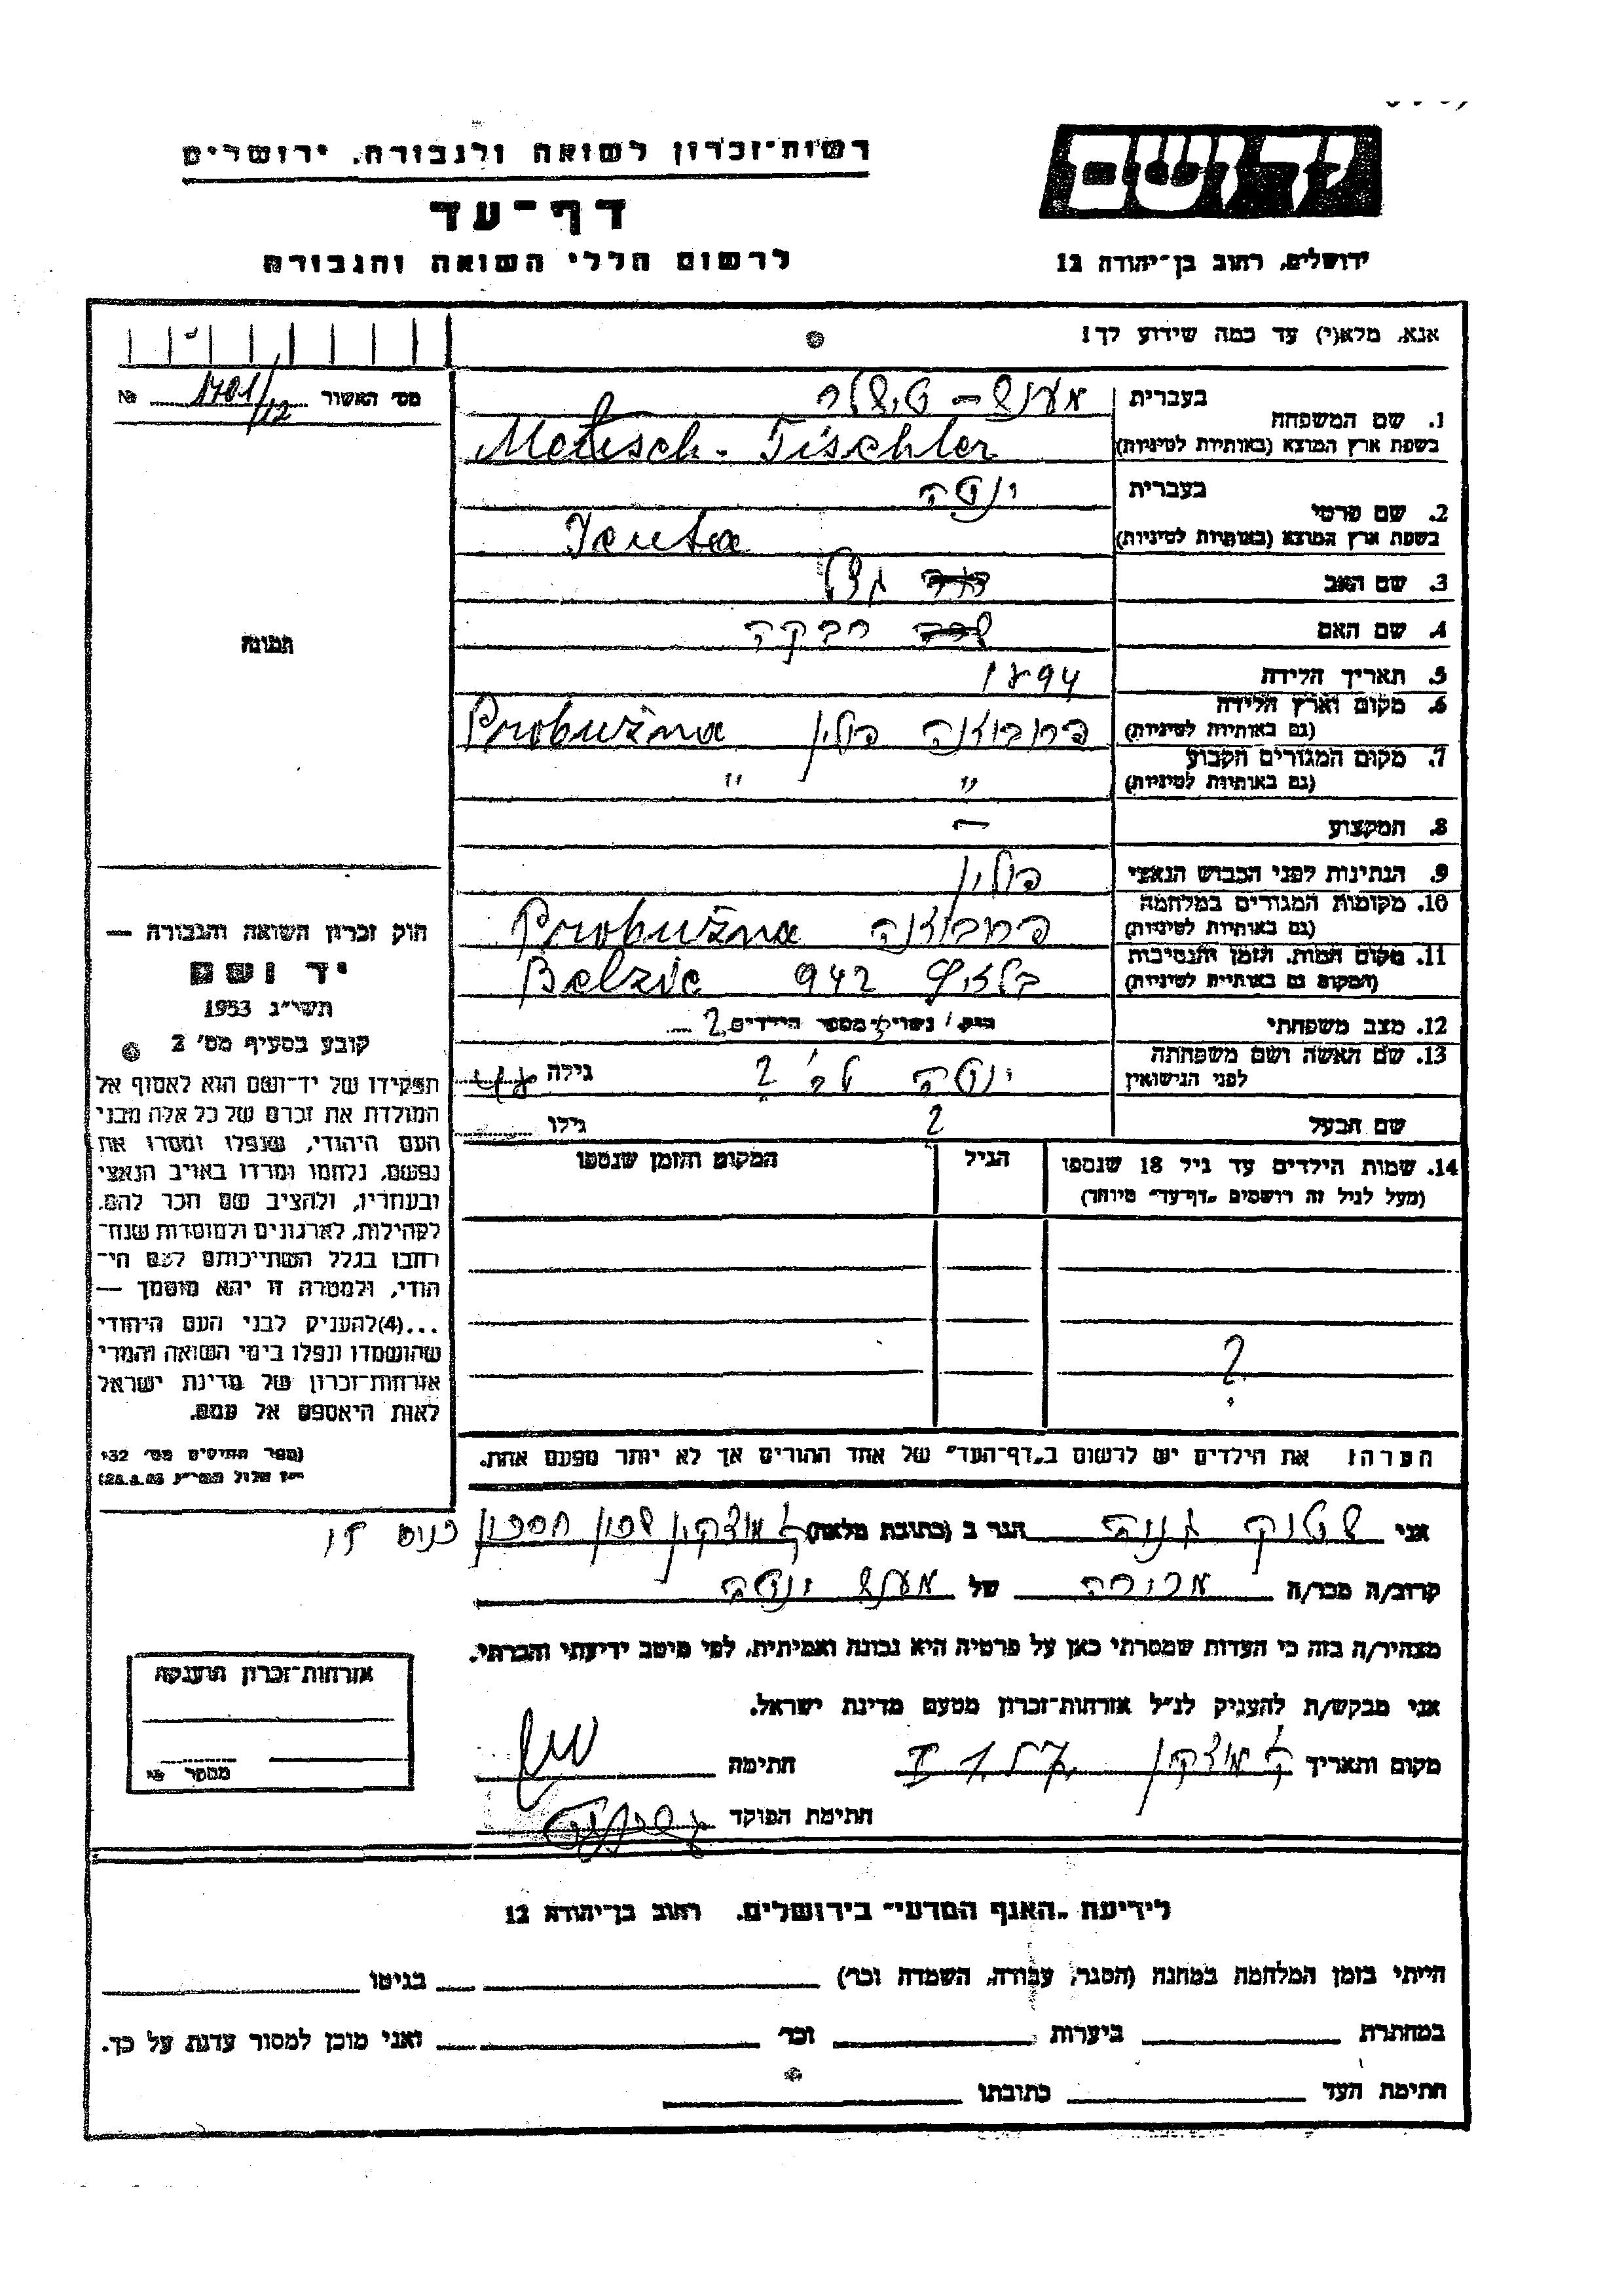 רשות־זכרון לשואה ולגבורה, ירושלים
יד ושם
דף־עד
לרשום חללי השואה והגבורה
ירושלים, רחוב בן־יהודה 12
אנא, מלא(י) עד כמה שידוע לך!
מס׳ האשור 1701/12 №
בעברית
1. שם המשפחה
בשפת ארץ המוצא (באותיות לטיניות) Tischler
בעברית ינטה
2. שם פרטי
בשפת ארץ המוצא (באותיות לטיניות) Jenta
3. שם האב
4. שם האם שרה רבקה
תמונה
5. תאריך הלידה 1894
6. מקום וארץ הלידה
(גם באותיות לטיניות) פרובוזנה פולין Probużna
7. מקום המגורים הקבוע
(גם באותיות לטיניות) " "
8. המקצוע —
9. הנתינות לפני הכבוש הנאצי פולין
10. מקומות המגורים במלחמה
(גם באותיות לטיניות) פרבוזנה Probużna
11. מקום המות, הזמן והנסיבות
(המקום גם באותיות לטיניות) בלזיץ 942 Belzic
12. מצב משפחתי רוק / נשוי מספר הילדים ?
13. שם האשה ושם משפחתה
לפני הנשואין ינטה ? גילה
שם הבעל ? גילו
14. שמות הילדים עד גיל 18 שנספו
(מעל לגיל זה רושמים „דף־עד״ מיוחד)
הגיל
המקום והזמן שנספו
?
חוק זכרון השואה והגבורה —
יד ושם
תשי״ג 1953
קובע בסעיף מס׳ 2
תפקידו של יד־ושם הוא לאסוף אל
המולדת את זכרם של כל אלה מבני
העם היהודי, שנפלו ומסרו את
נפשם, נלחמו ומרדו באויב הנאצי
ובעוזריו, ולהציב שם וזכר להם,
לקהילות, לארגונים ולמוסדות שנח־
רבו בגלל השתייכותם לעם הי־
הודי, ולמטרה זו יהא מוסמך —
...(4) להעניק לבני העם היהודי
שהושמדו ונפלו בימי השואה והמרי
אזרחות־זכרון של מדינת ישראל
לאות היאספם אל עמם.
(ספר החוקים מס׳ 132
הערה: את הילדים יש לרשום ב„דף־העד״ של אחד ההורים אך לא יותר מפעם אחת.
אני הגר ב (כתובת מלאה) ק. מוצקין
קרוב/ה מכר/ה מכירה של ינטה
מצהיר/ה בזה כי העדות שמסרתי כאן על פרטיה היא נכונה ואמיתית, לפי מיטב ידיעתי והכרתי.
אני מבקש/ת להעניק לנ״ל אזרחות־זכרון מטעם מדינת ישראל.
מקום ותאריך ק. מוצקין חתימה
חתימת הפוקד
אזרחות־זכרון הוענקה
מספר №
לידיעת „האגף המדעי״ בירושלים, רחוב בן־יהודה 12
הייתי בזמן המלחמה במחנה (הסגר, עבודה, השמדה וכו׳) בגיטו
במחתרת ביערות וכו׳ ואני מוכן למסור עדות על כך.
חתימת העד כתובתו